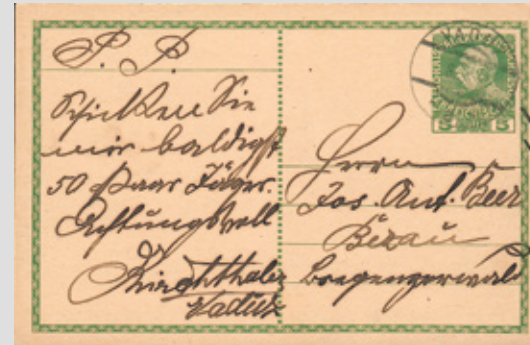 P. P.
Schicken Sie
mir baldigst
50 Paar Jäger.
Achtungsvoll
Vaduz
5 5
Herrn
Jos. Ant. Beer
Bezau
Bregenzerwald